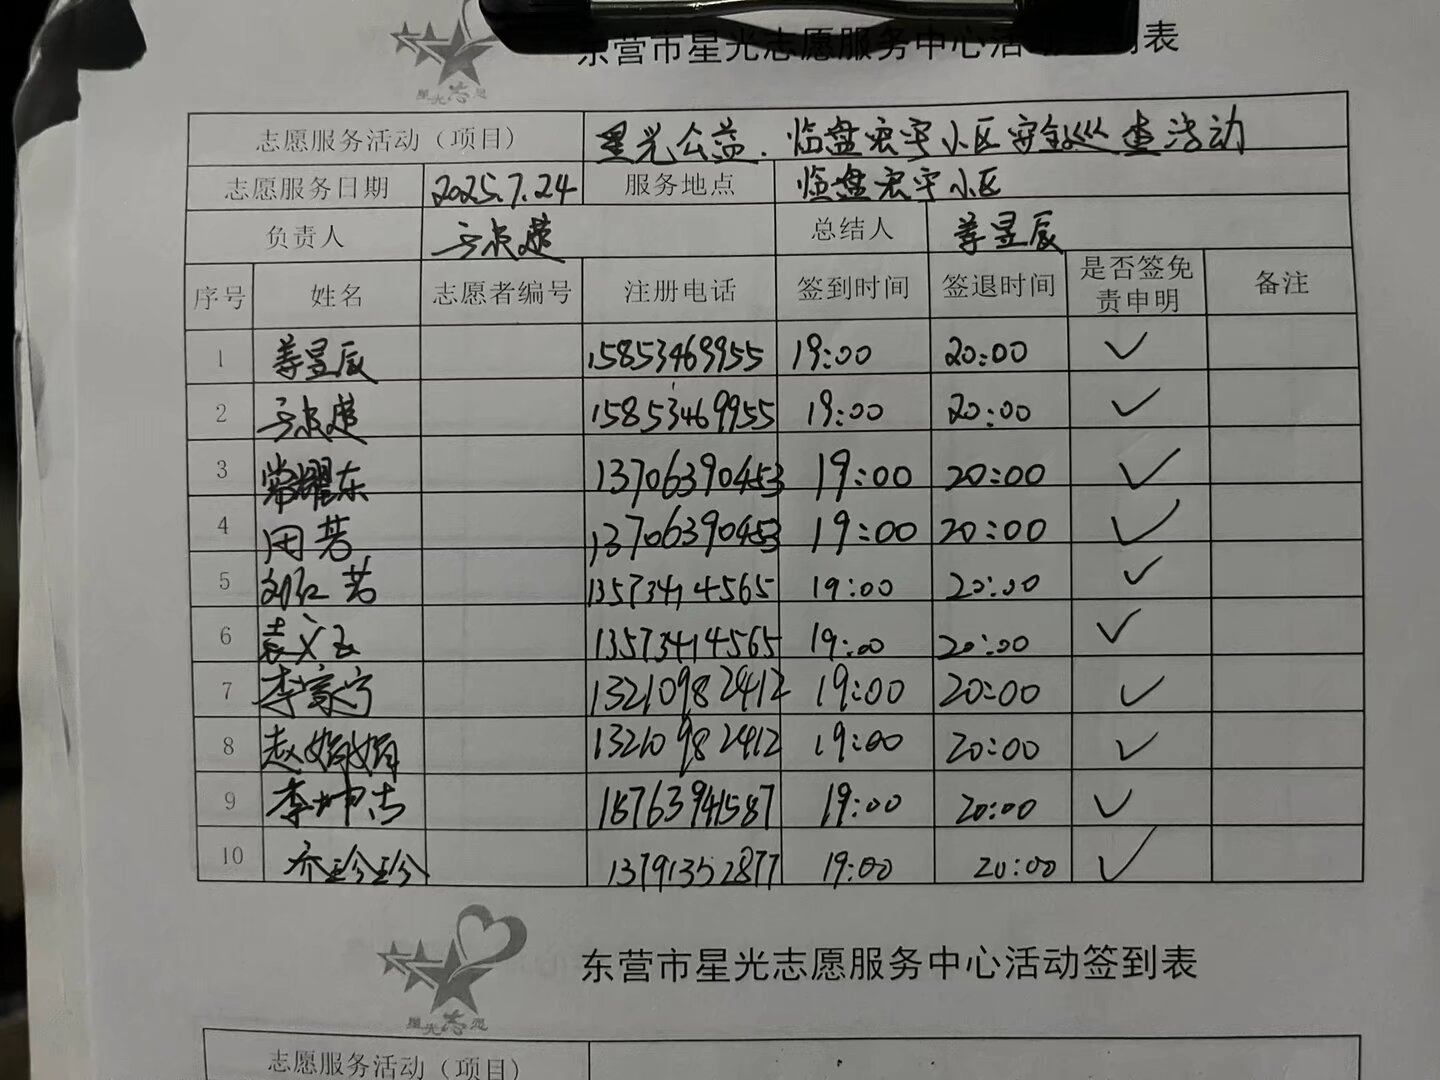 东营市星光志愿服务中心活动签到表
星光志愿
志愿服务活动（项目） 星光公益.临盘宏宇小区安全巡查活动
志愿服务日期 2025.7.24 服务地点 临盘宏宇小区
负责人 总结人 昱辰
序号 姓名 志愿者编号 注册电话 签到时间 签退时间 是否签免责申明 备注
1 昱辰 15853469955 19:00 20:00 ✓
2 15853469955 19:00 20:00 ✓
3 常耀东 13706390453 19:00 20:00 ✓
4 田若 13706390453 19:00 20:00 ✓
5 刘红若 13573414565 19:00 20:00 ✓
6 袁义 13573414565 19:00 20:00 ✓
7 李家宁 13210982412 19:00 20:00 ✓
8 赵娟娟 13210982412 19:00 20:00 ✓
9 李坤 18763941587 19:00 20:00 ✓
10 乔珍珍 13791352877 19:00 20:00 ✓
东营市星光志愿服务中心活动签到表
星光志愿
志愿服务活动（项目）